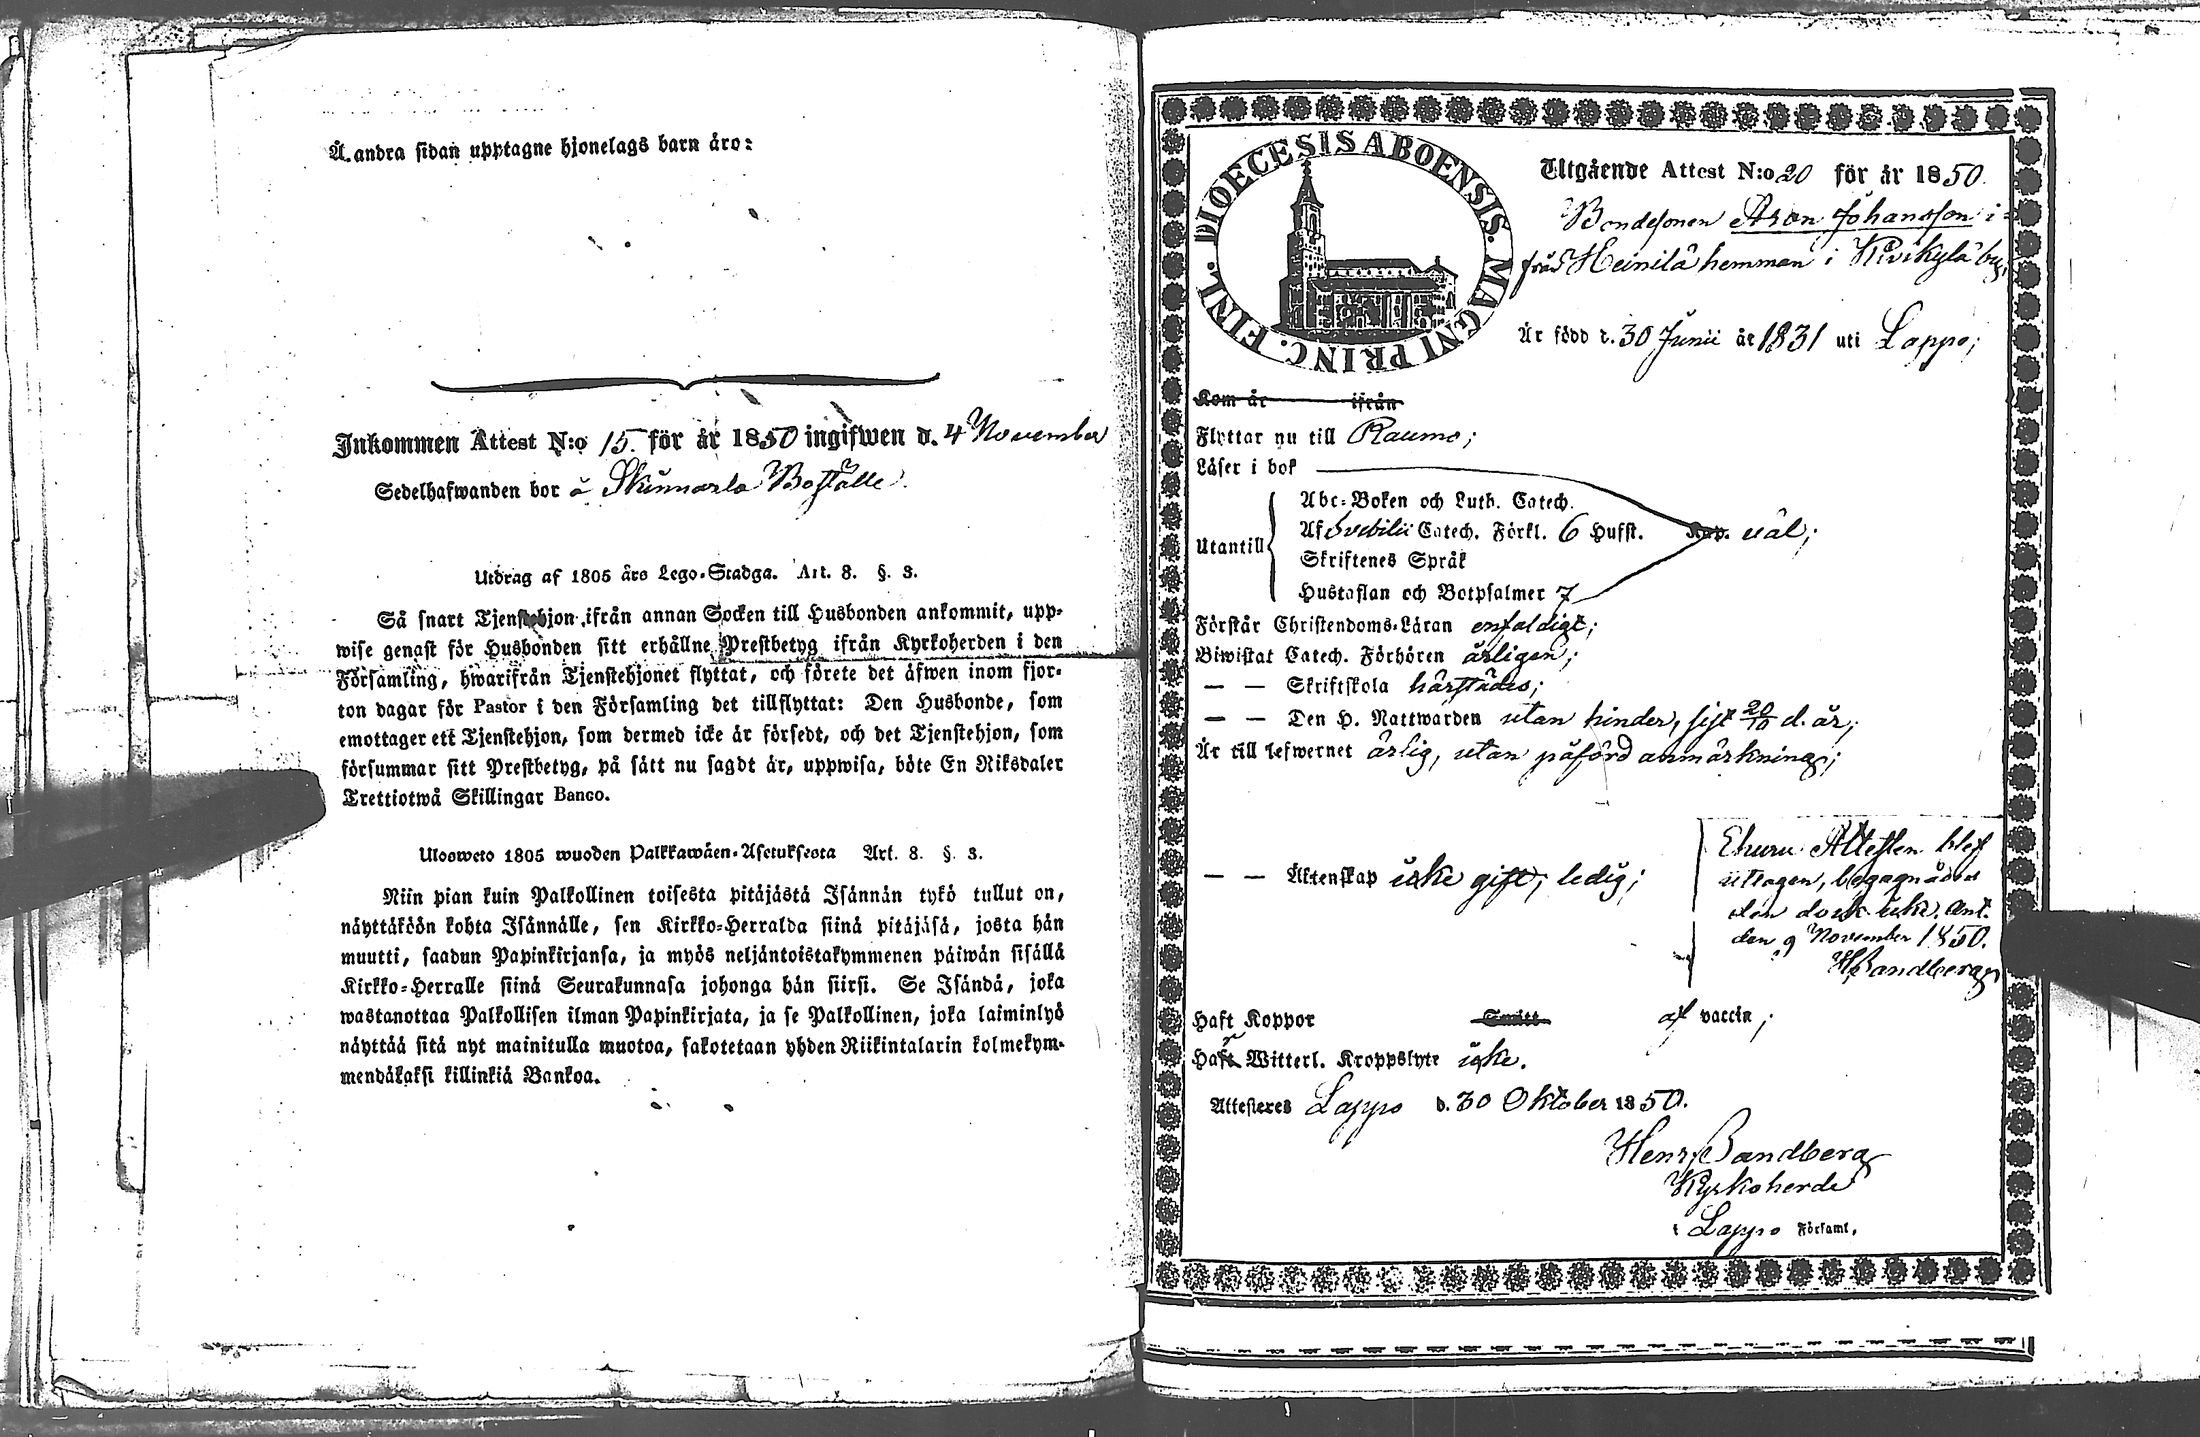 Å andra sidan upptagne hjonelags barn äro:
Inkommen Attest N:o 15. för år 1850 ingifwen d. 4 November
Sedelhafwanden bor å Skinnarla Boställe.
Utdrag af 1805 års Lego-Stadga. Art. 8. §. 3.
Så snart Tjenstehjon ifrån annan Socken till Husbonden ankommit, upp-
wise genast för Husbonden sitt erhållne Prestbetyg ifrån Kyrkoherden i den
Församling, hwarifrån Tjenstehjonet flyttat, och förete det äfwen inom fjor-
ton dagar för Pastor i den Församling det tillflyttat: Den Husbonde, som
emottager ett Tjenstehjon, som dermed icke är försedt, och det Tjenstehjon, som
försummar sitt Prestbetyg, på sätt nu sagdt är, uppwisa, böte En Riksdaler
Trettiotwå Skillingar Banco.
Ulosweto 1805 wuoden Palkkawäen-Asetuksesta Art. 8. §. 3.
Niin pian kuin Palkollinen toisesta pitäjästä Isännän tykö tullut on,
näyttäköön kohta Isännälle, sen Kirkko-Herralda siinä pitäjäsä, josta hän
muutti, saadun Papinkirjansa, ja myös neljäntoistakymmenen päiwän sisällä
Kirkko-Herralle siinä Seurakunnasa johonga hän siirsi. Se Isändä, joka
wastanottaa Palkollisen ilman Papinkirjata, ja se Palkollinen, joka laiminlyö
näyttää sitä nyt mainitulla muotoa, sakotetaan yhden Riikintalarin kolmekym-
mendäkaksi killinkiä Bankoa.
DIOECESIS ABOENSIS. MAGNI PRINC. FINL.
Utgående Attest N:o 20 för år 1850.
Bondesonen Aron Johansson i-
från Heinilä hemman i Kivikylä by,
Är född d. 30 Junii år 1831 uti Lappo;
Kom år ifrån
Flyttar nu till Raumo;
Läser i bok
Abc-Boken och Luth. Catech.
Utantill Af Svebilii Catech. Förkl. 6 Hufst. Kap. väl;
Skriftenes Språk
Hustaflan och Botpsalmer 7
Förstår Christendoms-Läran enfaldigt;
Biwistat Catech. Förhören årligen;
— — Skriftskola härstädes;
— — Den H. Nattwarden utan hinder, sist 20/10 d. år;
Är till lefwernet ärlig, utan påförd anmärkning;
— — Äktenskap icke gift, ledig;
Ehuru Attesten blef
uttagen, begagnades
den dock icke. Ant.
den 9 November 1850.
HSandberg
Haft Koppor Smitt af vaccin;
Haft Witterl. Kroppslyte icke.
Attesteres Lappo d. 30 Oktober 1850.
Henr Sandberg
Kyrkoherde
i Lappo Församl.